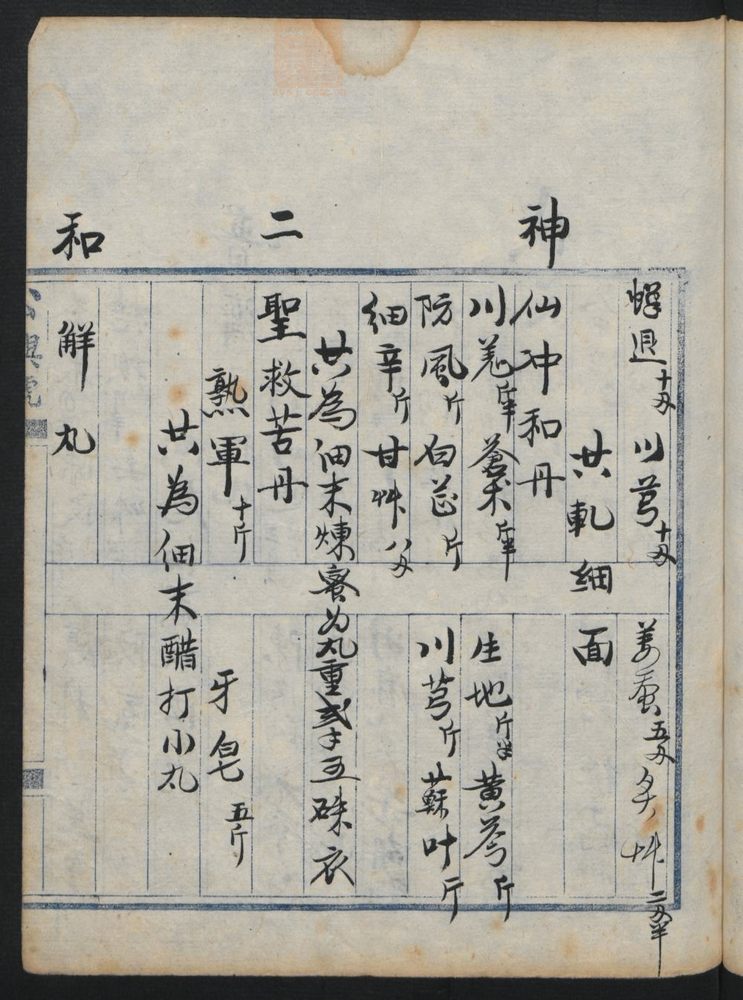 蟬退十刄 川芎十刄 姜蚕五刄 炙艸二刄半
共軋細面
神仙冲和丹
川羌斤半 蒼术斤半 生地斤半 黄芩斤
防風斤 白芷斤 川芎斤 蘇叶斤
細辛斤 甘艸八刄
共為細末煉蜜为丸重弍 五硃衣
二聖救苦丹
熟軍十斤 牙皂五斤
共為細末醋打小丸
和解丸